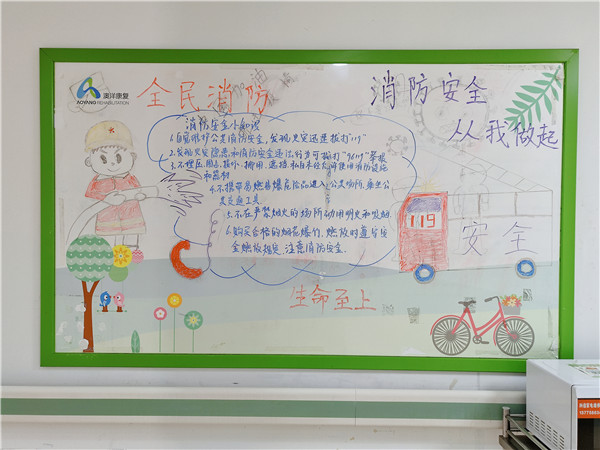 澳洋康复
AOYANG REHABILITATION
全民消防
消防安全
从我做起
消防安全小知识
1.自觉维护公共消防安全,发现火灾迅速拨打"119"
2.发现火灾隐患和消防安全违法行为可拨打"96119"举报
3.不埋压、圈占、损坏、挪用、遮挡、私自未经允许使用消防设施
和器材
4.不携带易燃易爆危险品进入公共场所、乘坐公
共交通工具
5.不在严禁烟火的场所动用明火和吸烟
6.购买合格的烟花爆竹,燃放时遵守安
全燃放规定,注意消防安全.
119
安全
生命至上